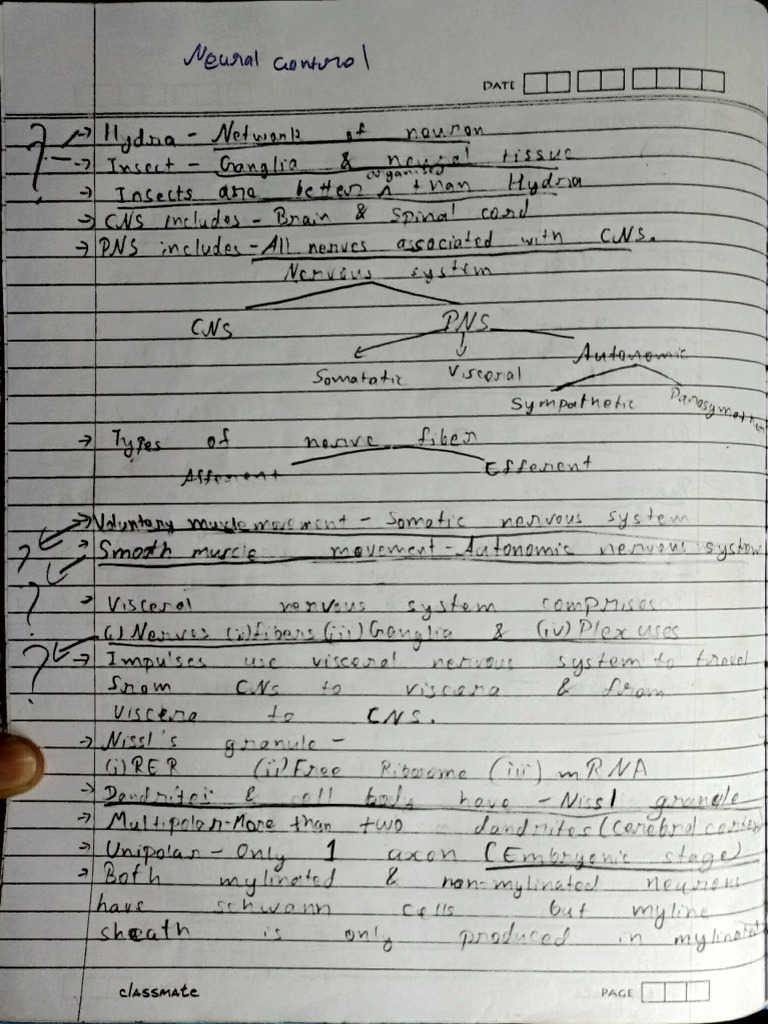 Neural Control
DATE
? → Hydra - Network of neuron
→ Insect - Ganglia & neural tissue
→ Insects are better organised than Hydra
→ CNS includes - Brain & Spinal cord
→ PNS includes - All nerves asociated with CNS.
Nervous system
CNS PNS
Somatatic Visceral Autonomic
Sympathetic Parasymathe
→ Types of nerve fiber
Afferent Efferent
→ Voluntary muscle movement - Somatic nervous system
? → Smooth muscle movement - Autonomic nervous system
? → Visceral nervous system comprises
(i) Nerves (ii) fibers (iii) Ganglia & (iv) Plexuses
? → Impulses use visceral nervous system to travel
from CNS to viscera & from
viscera to CNS.
→ Nissl's granule -
(i) RER (ii) Free Ribosome (iii) mRNA
→ Dendrites & cell body have - Nissl granule
→ Multipolar - More than two dendrites (Cerebral cortex
→ Unipolar - Only 1 axon (Embryonic stage)
→ Both mylinated & non-mylinated neurons
have schwann cells but myline
sheath is only produced in mylinated
classmate PAGE